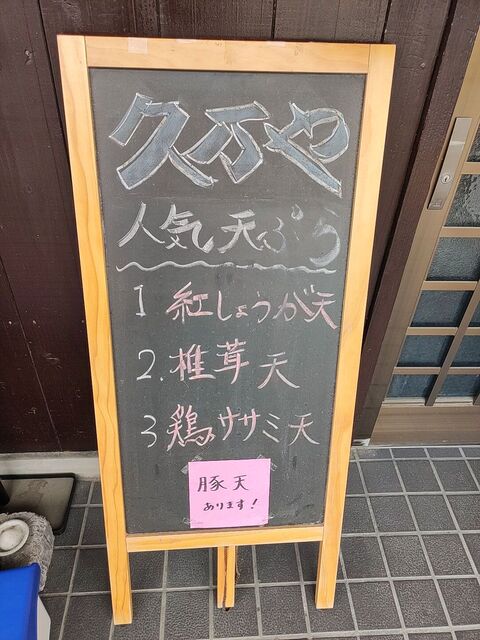 久乃や
人気天ぷら
1 紅しょうが天
2. 椎茸天
3 鶏ササミ天
豚天
あります!